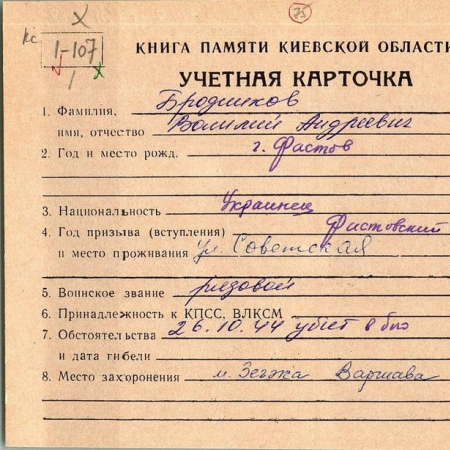 Х
75
кс
1-107
1
КНИГА ПАМЯТИ КИЕВСКОЙ ОБЛАСТИ
УЧЕТНАЯ КАРТОЧКА
1. Фамилия, Бродников
имя, отчество Валилий Андреевич
2. Год и место рожд. г. Фастов
3. Национальность Украинец
4. Год призыва (вступления) Фастовский
и место проживания ул. Советская
5. Воинское звание рядовой
6. Принадлежность к КПСС, ВЛКСМ
7. Обстоятельства 26.10.44 убит в бою
и дата гибели
8. Место захоронения м. Зегжа Варшава